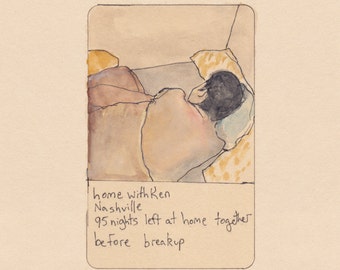 home with Ken
Nashville
95 nights left at home together
before breakup